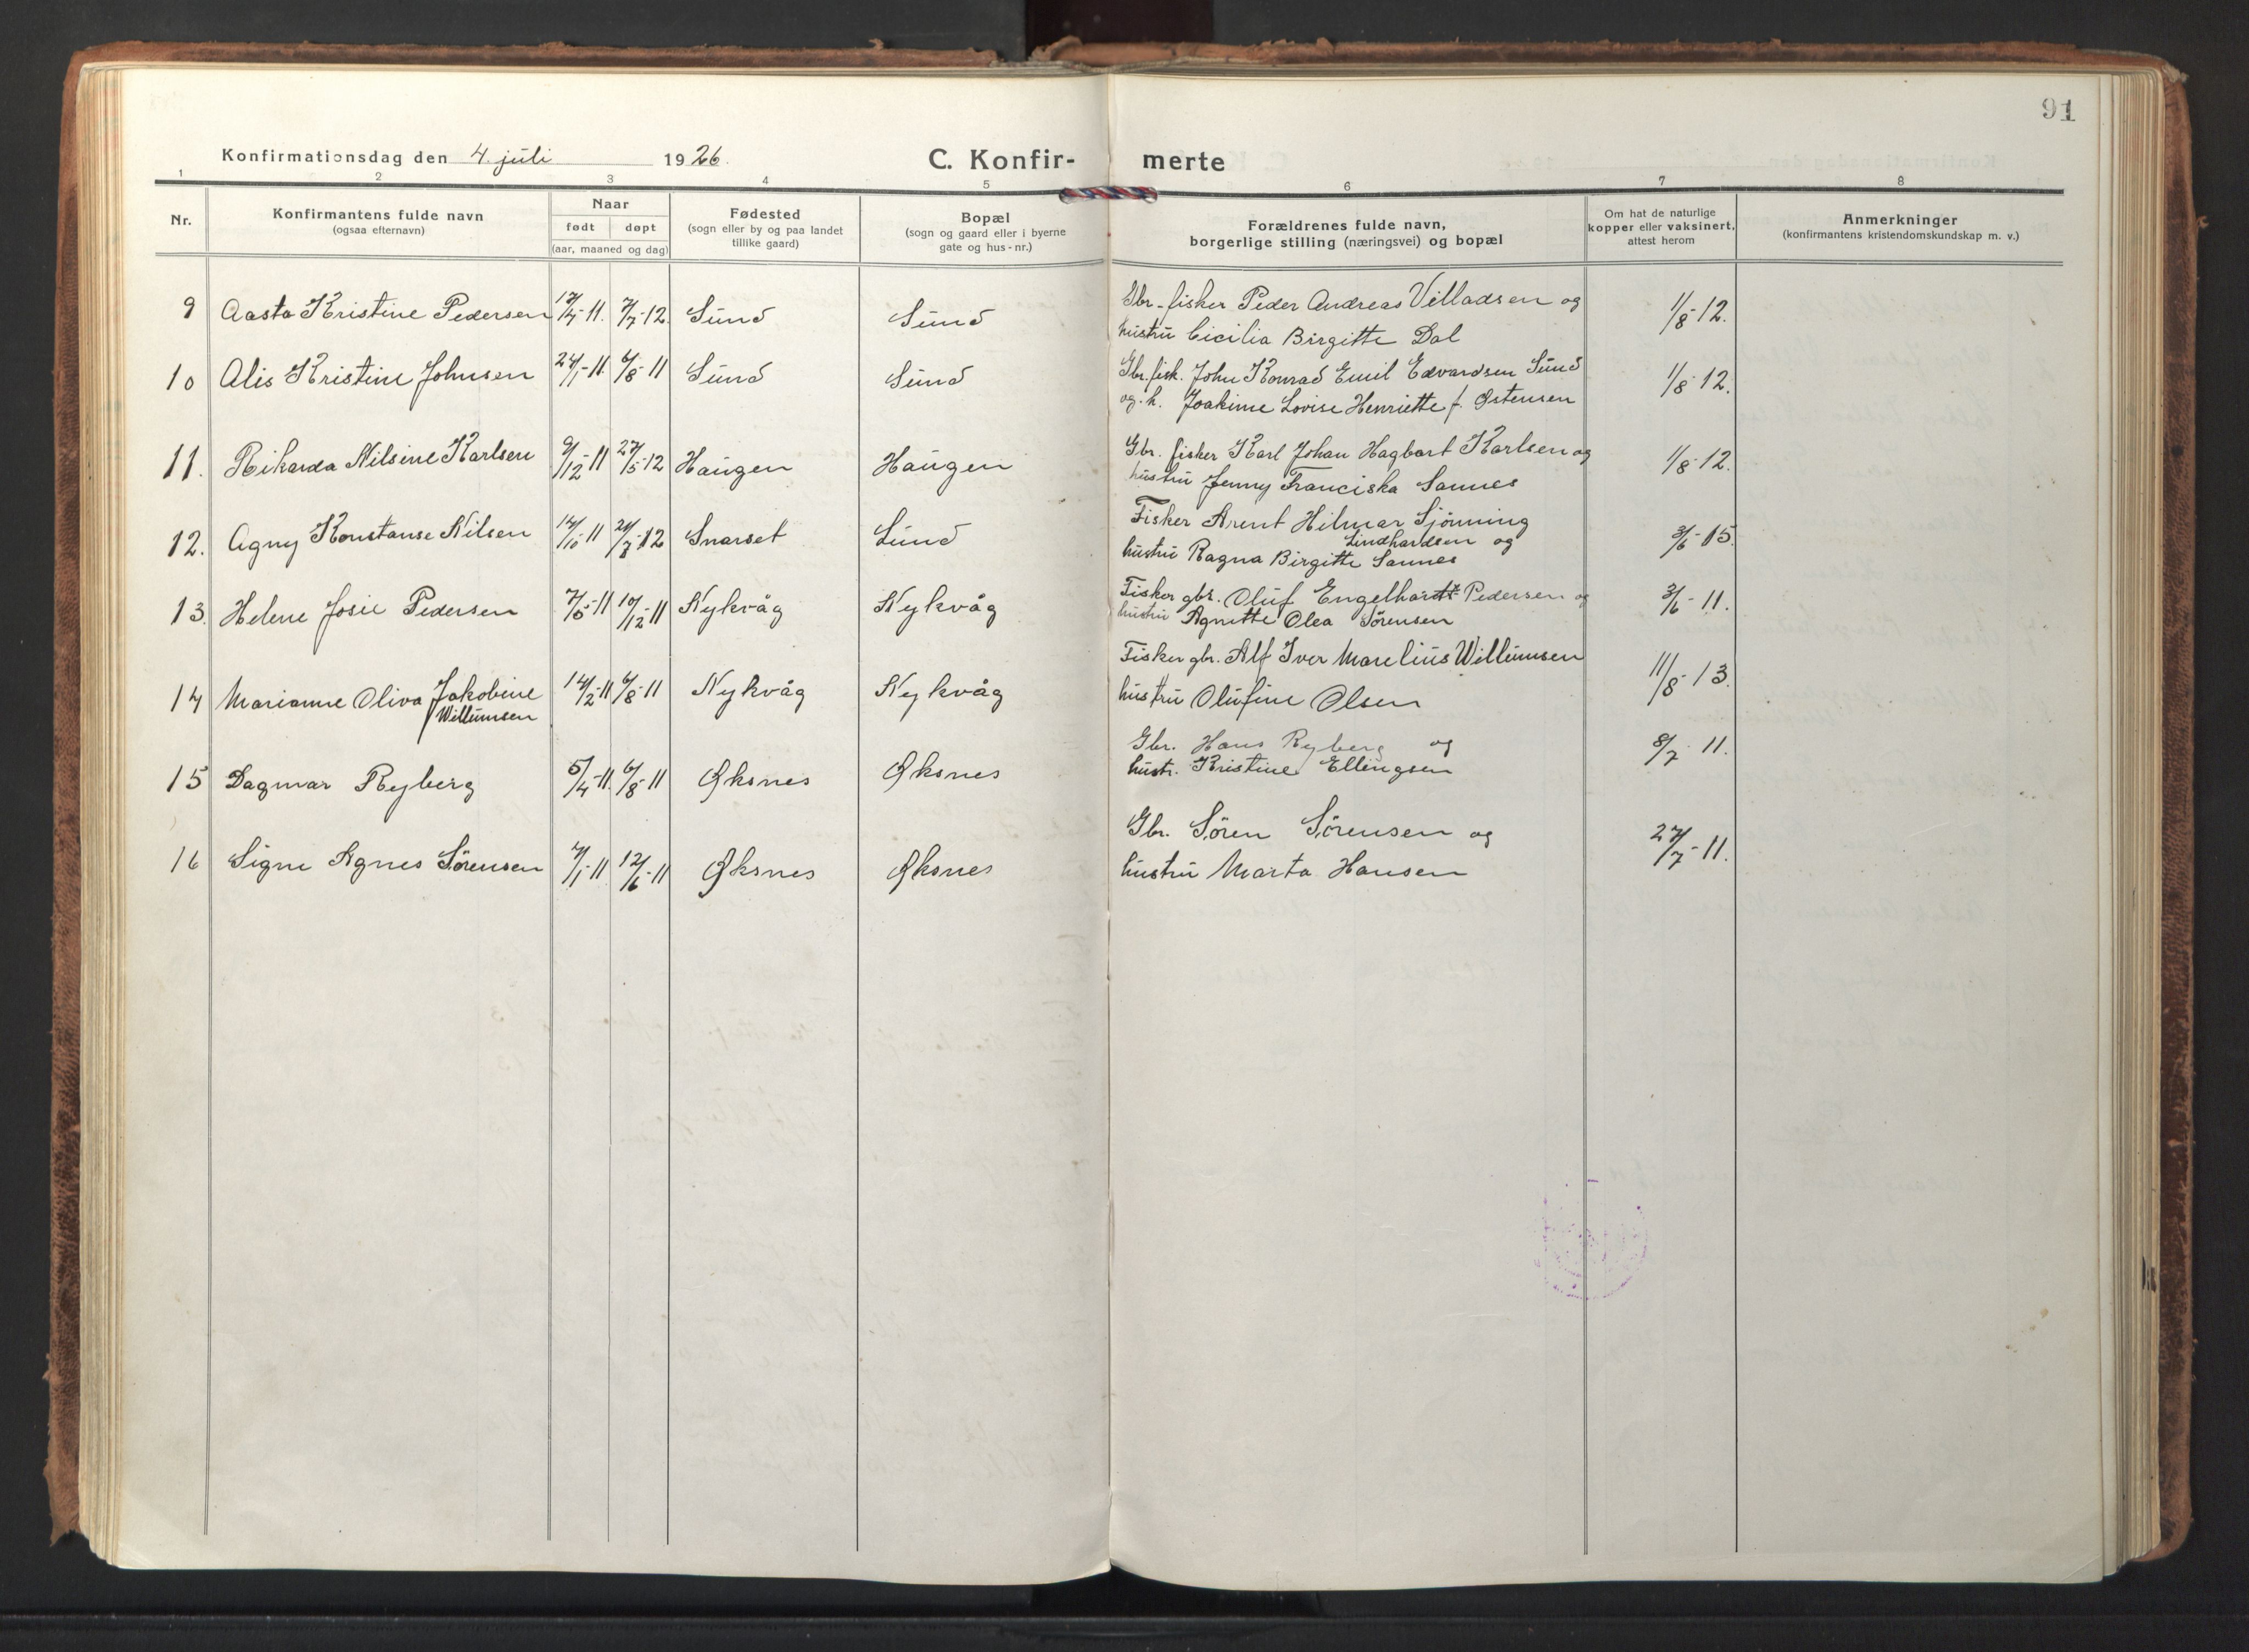 91
Konfirmationsdag den 4. juli 1926. C. Konfir- merte
1 2 3 4 5 6 7 8
Nr. Konfirmantens fulde navn (ogsaa efternavn) Naar født døpt (aar, maaned og dag) Fødested (sogn eller by og paa landet tillike gaard) Bopæl (sogn og gaard eller i byerne gate og hus-nr.) Forældrenes fulde navn, borgerlige stilling (næringsvei) og bopæl Om hat de naturlige kopper eller vaksinert, attest herom Anmerkninger (konfirmantens kristendomskundskap m. v.)
9 Aasta Kristine Pedersen 17/4-11. 7/7-12. Sund Sund Gbr-fisker Peder Andreas Villadsen og 1/8-12.
hustru Cicilia Birgitte Dal
10 Alis Kristine Johnsen 24/1-11. 6/8-11 Sund Sund Gbr. fisk. John Konrad Emil Edvardsen Sund 1/8-12.
og. h. Joakime Lovise Henriette f. Østensen
11. Rikarda Nilsine Karlsen 9/12-11 27/5-12 Haugen Haugen Gbr. fisker Karl Johan Hagbart Karlsen og 1/8-12.
hustru Jenny Franciska Sannes
12. Agny Konstanse Nilsen 14/10-11 Snarset Sund Fisker Arent Hilmar Sjönning 3/6-15.
Lindhardsen og
hustru Ragna Birgitte Sannes
13. Helene Josie Pedersen 7/5-11 10/12-11 Nykvåg Nykvåg Fisker gbr. Oluf Engelhardt Pedersen og 3/6-11.
hustru Agnette Olea Sörensen
14 Marianne Oliva Jakobine 14/2-11 6/8-11 Nykvåg Nykvåg Fisker gbr. Alf Iver Marelius Willumsen 11/8-13.
Willumsen
hustru Olufine Olsen
15 Dagmar Ryberg 5/4-11. 6/8-11 Øksnes Øksnes Gbr. Hans Ryberg og 8/7-11.
hustr. Kristine Ellingsen
16 Signe Agnes Sörensen 7/1-11 12/6-11 Øksnes Øksnes Gbr. Sören Sörensen og 27/7-11.
hustru Marta Hansen